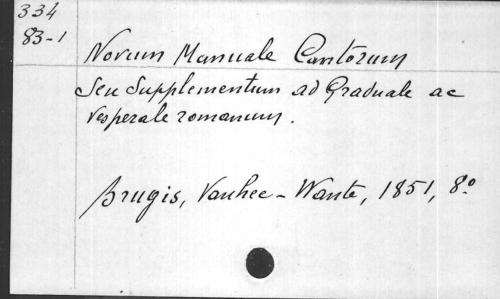 334
83-1
Novum Manuale Cantorum
Seu Supplementum ad Graduale ac
Vesperale romanum.
Brugis, Vanhee-Wante, 1851, 8.º